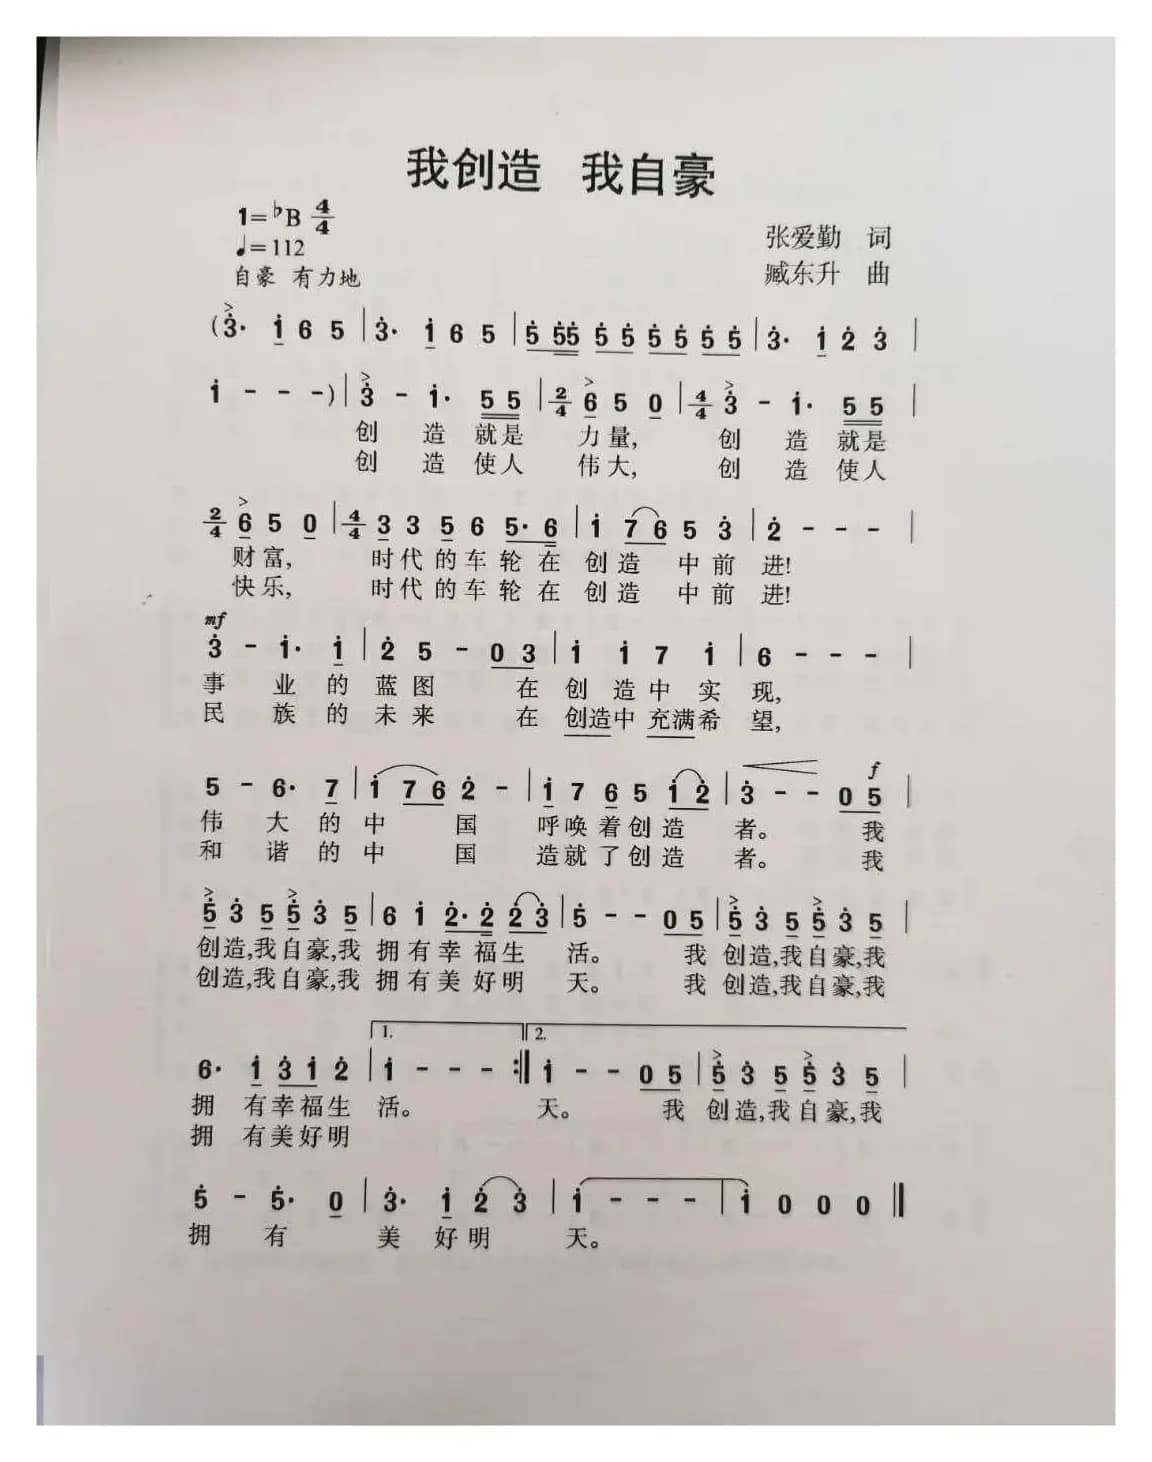 我创造 我自豪
1=♭B 4/4
♩=112
张爱勤 词
自豪 有力地
臧东升 曲
(3̇· 1̇ 6 5 | 3̇· 1̇ 6 5 | 5̇ 5̇5̇ 5̇ 5̇ 5̇ 5̇ 5̇ 5̇ | 3̇· 1̇ 2̇ 3̇ |
1̇ - - -) | 3̇ - 1̇· 5 5 | 2/4 6 5 0 | 4/4 3̇ - 1̇· 5 5 |
创 造 就是 力量, 创 造 就是
创 造 使人 伟大, 创 造 使人
2/4 6 5 0 | 4/4 3 3 5 6 5· 6 | 1̇ 7 6 5 3̇ | 2̇ - - - |
财富, 时代的车轮在创造 中前 进!
快乐, 时代的车轮在创造 中前 进!
mf
3̇ - 1̇· 1̇ | 2̇ 5 - 0 3 | 1̇ 1̇ 7 1̇ | 6 - - - |
事 业的蓝图 在创造中实现,
民 族的未来 在创造中充满希望,
f
5 - 6· 7 | 1̇ 7 6 2̇ - | 1̇ 7 6 5 1̇ 2̇ | 3̇ - - 0 5 |
伟 大的中 国 呼唤着创造 者。 我
和 谐的中 国 造就了创造 者。 我
5̇ 3̇ 5̇ 5̇ 3̇ 5̇ | 6 1̇ 2̇· 2̇ 2̇ 3̇ | 5̇ - - 0 5 | 5̇ 3̇ 5̇ 5̇ 3̇ 5̇ |
创造,我自豪,我 拥有幸福生 活。 我 创造,我自豪,我
创造,我自豪,我 拥有美好明 天。 我 创造,我自豪,我
1. 2.
6· 1̇ 3̇ 1̇ 2̇ | 1̇ - - - :‖ 1̇ - - 0 5 | 5̇ 3̇ 5̇ 5̇ 3̇ 5̇ |
拥 有幸福生 活。 天。 我 创造,我自豪,我
拥 有美好明
5̇ - 5̇· 0 | 3̇· 1̇ 2̇ 3̇ | 1̇ - - - | 1̇ 0 0 0 ‖
拥 有 美 好明 天。